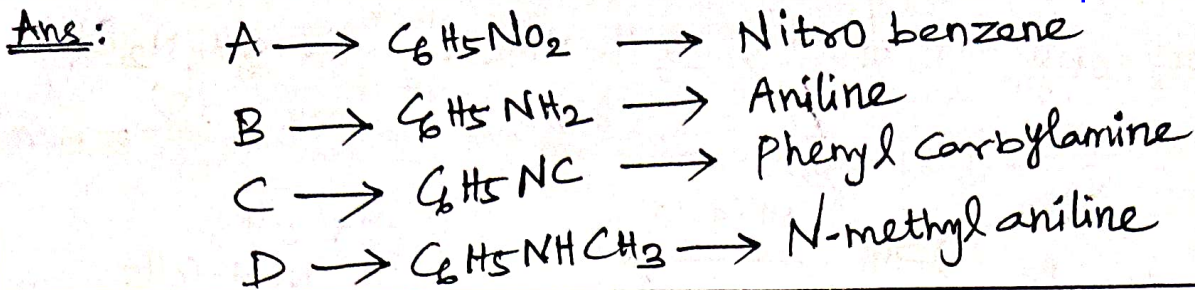 Ans: A → C6H5NO2 → Nitro benzene
B → C6H5NH2 → Aniline
C → C6H5NC → Phenyl Carbylamine
D → C6H5NHCH3 → N-methyl aniline